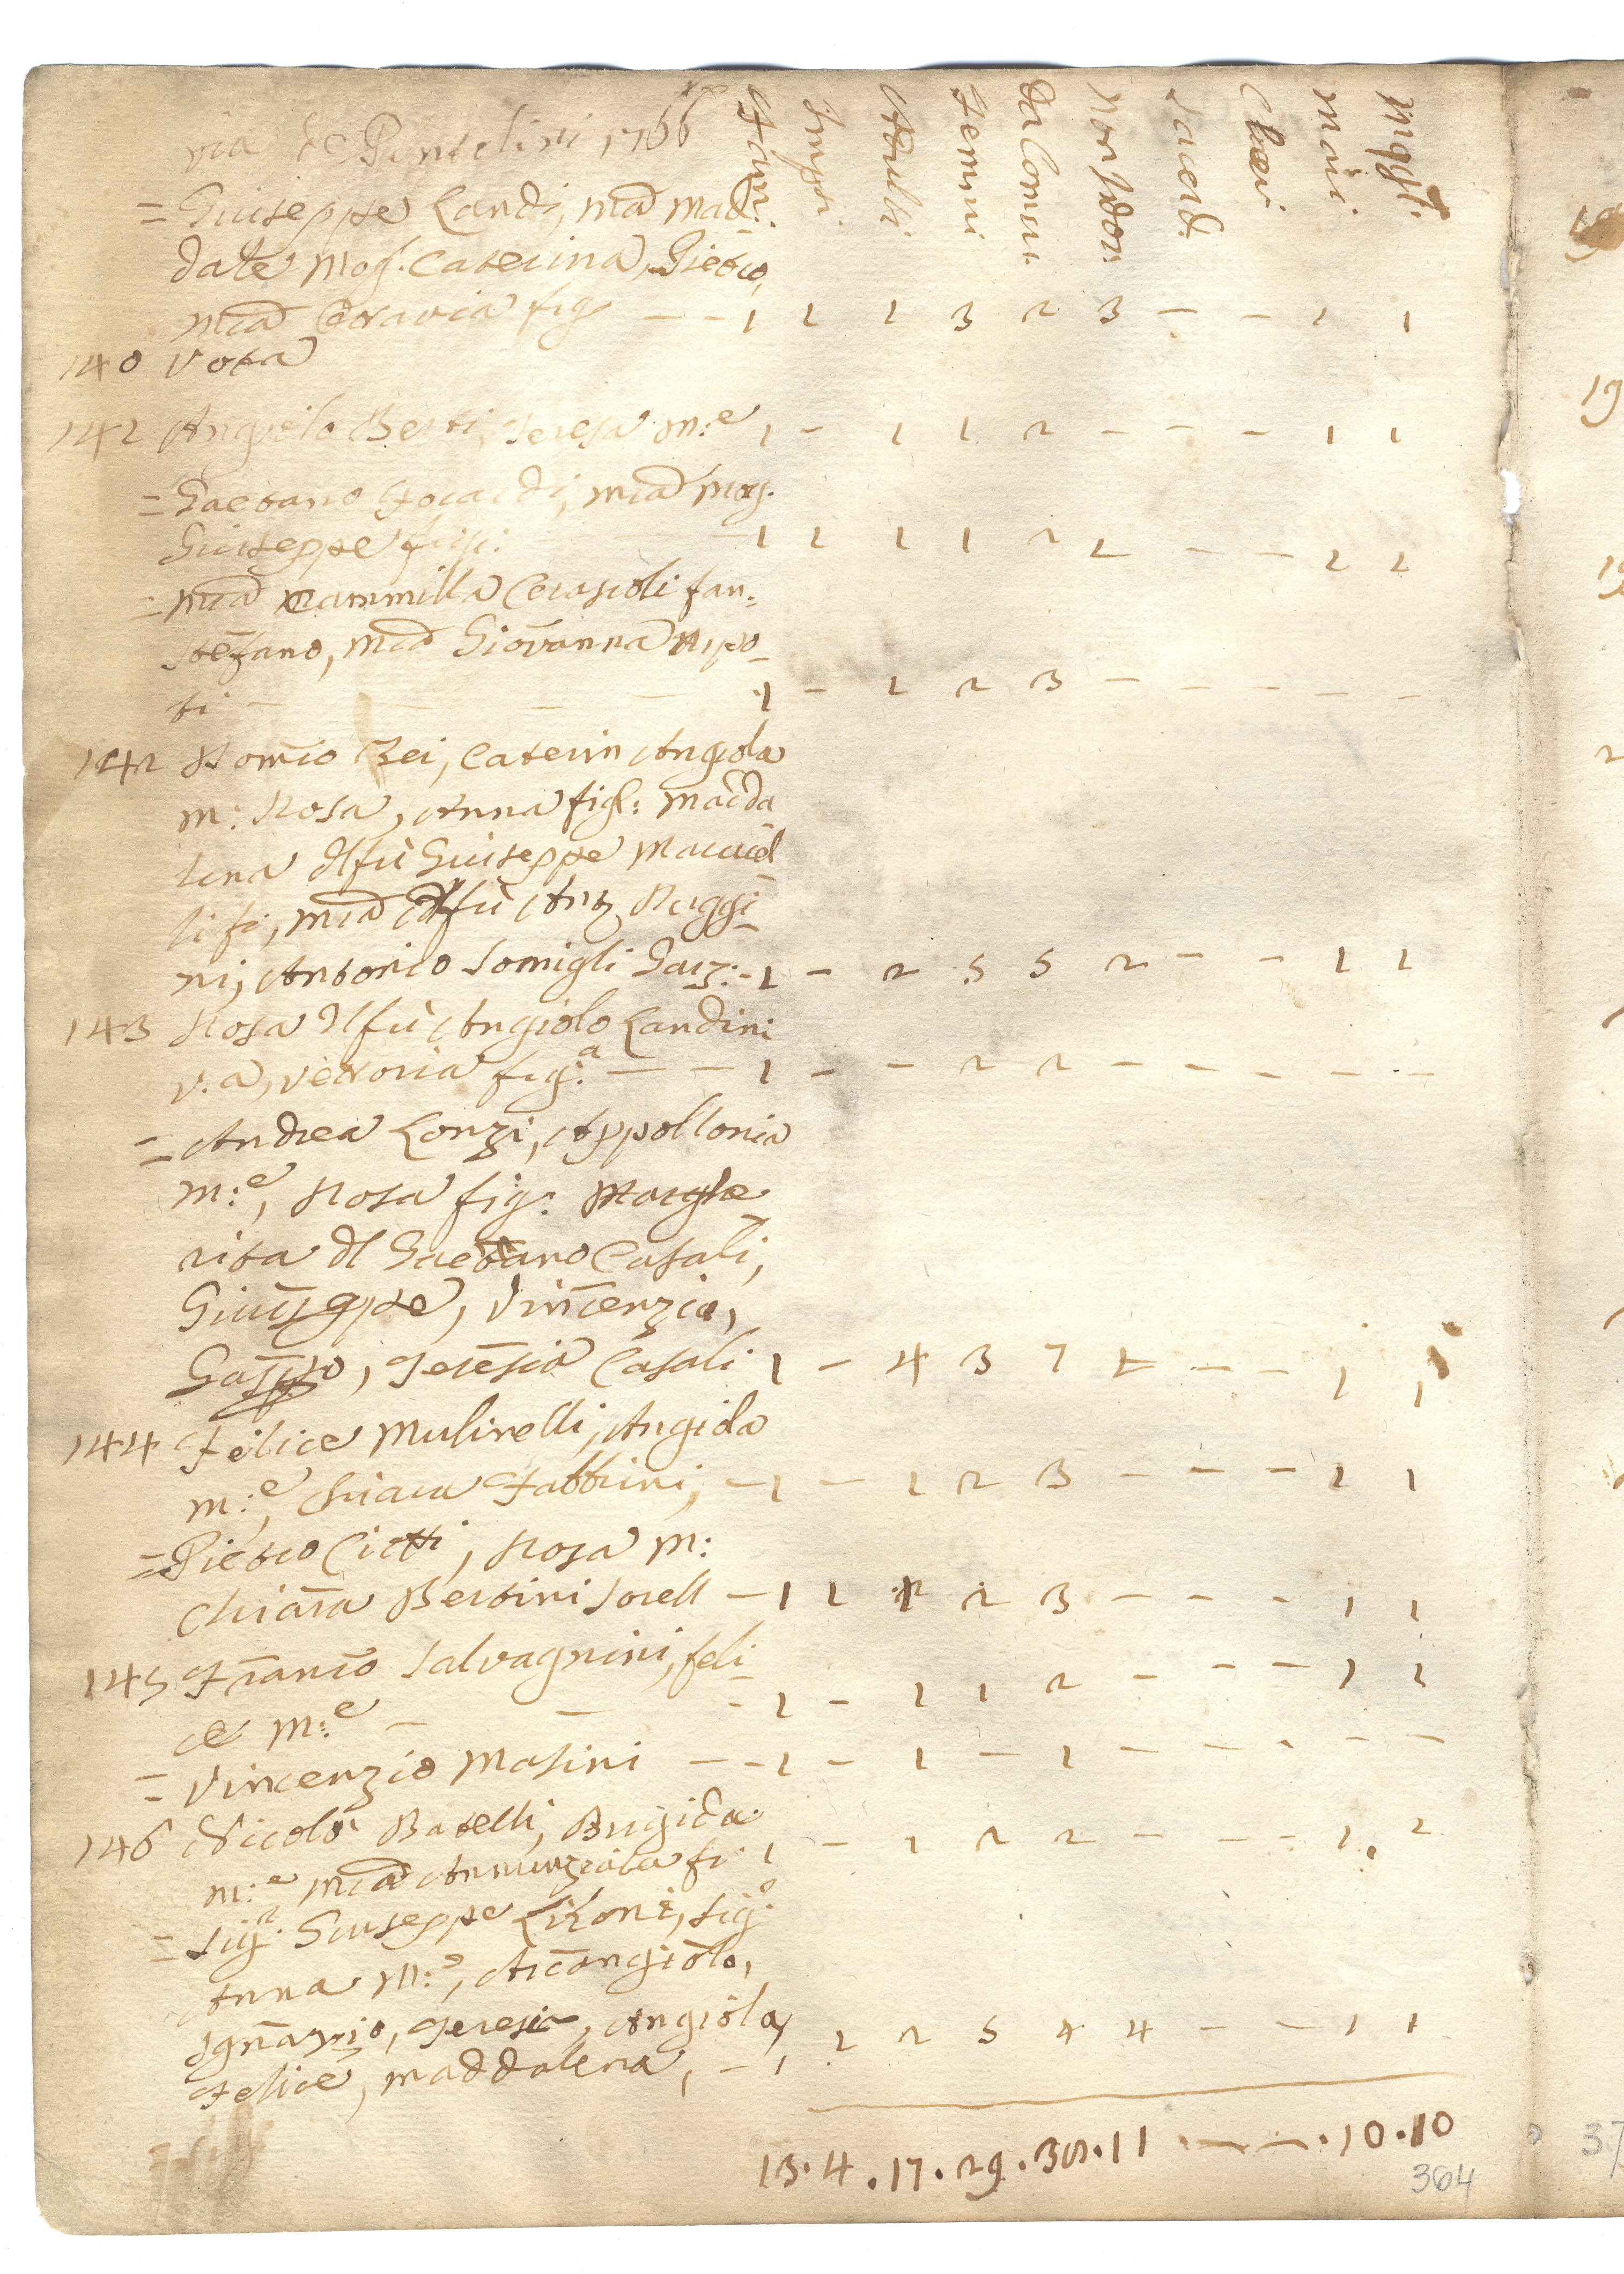 via de Pentolini 1766
Fam: Imposi Maschi Femmi da Comun: Non Com: Sacerd: Cheri mari mogli
= Giuseppe Landi, Mã Mad:
date mog: Caterina, Pietro,
Mã Ottavia fig — — 1 1 1 3 2 3 — — 1 1
140 Vota
141 Angiolo Berti, Teresa m:e 1 - 1 1 2 — — — 1 1
= Gaetano Focardi, Mã mog:
Giuseppe fig: 1 1 1 1 2 1 — — 1 1
= Mã Cammilla Cerascoli fan:
Stefano, Mã Giovanna nipo-
ti — 1 - 1 2 3 — — — — —
142 Romõ Bei, Caterin Angiola
m: Rosa, Anna figl: Madda
lena dl fù Giuseppe
ti fi, Mã dl fù Antº Ruggi-
ni, Antonio Somigli Garz: - 1 - 2 5 5 2 — — 1 1
143 Rosa dl fù Angiolo Landini
v.a, Vettoria fig:a — — 1 - - 2 2 — — — — —
= Andrea Lonzi, Appollonia
m:e, Rosa fig: Marghe
rita dl Gaetano Casali,
Giuseppe, Vincenzio,
Gaspro, Teresia Casali 1 - 4 3 7 1 — — 1 1
144 Felice Mulinelli, Angiola
m:e, Chiara Fabbrini, - 1 - 1 2 3 — — — 1 1
= Pietro Ciotti, Rosa m:
Chiara Bertini sorell - 1 1 1 2 3 — — — 1 1
145 Francõ Salvagnini, feli
ce m:e — — - 1 - 1 1 2 — — — 1 1
= Vincenzio Masini — - 1 - 1 — 1 — — — — —
146 Nicolò Batelli, Brigida
m:e Mã Annunziata fi: 1 - 1 2 2 — — — 1 1
= Sig:r Giuseppe Lironi, Sig:a
Anna m:e, Arcangiolo,
Ignazio, Teresia, Angiola,
Felice, Maddalena, - 1 1 2 5 4 4 — — 1 1
13 . 4 . 17 . 29 . 38 . 11 — — . 10 . 10
364